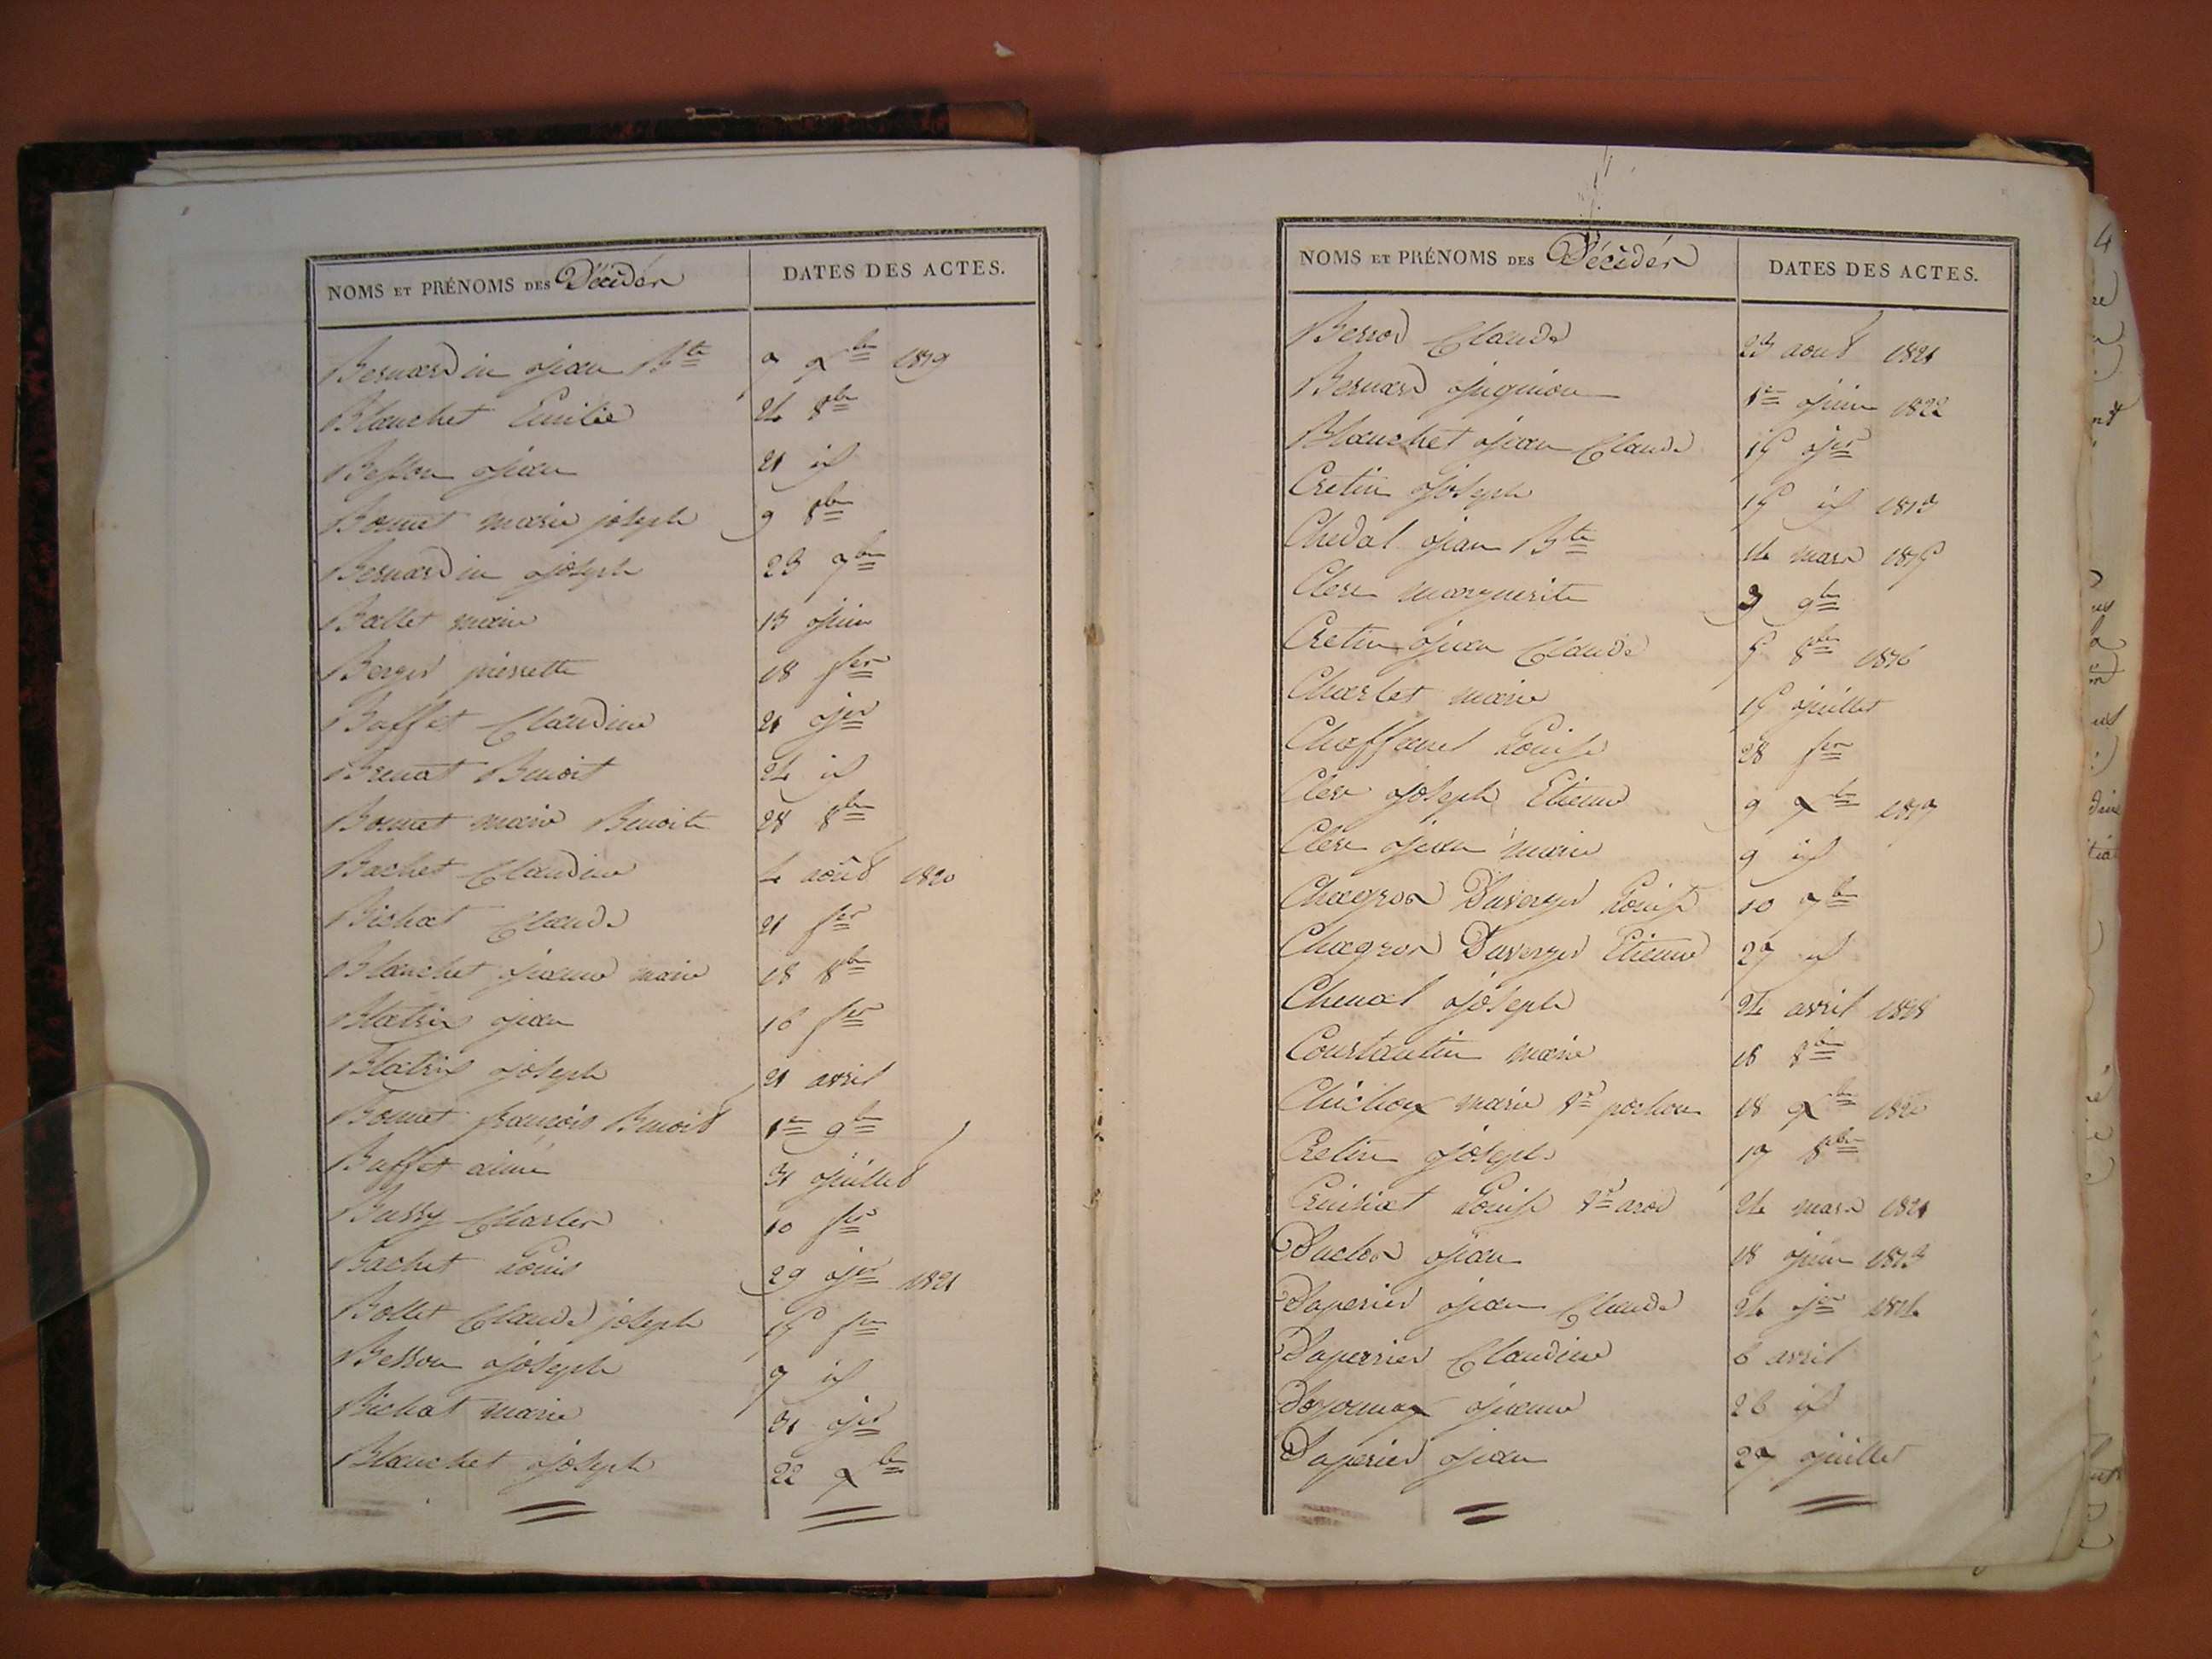 NOMS ET PRÉNOMS DES Décédés DATES DES ACTES.
Bernardin jean Bte 7 Xbre 1819
Blanchet Emilie 24 8bre
Besson jean 21 id
Bonnet marie joseph 9 8bre
Bernardin joseph 23 7bre
Ballet marie 13 juin
Berger pierrette 18 fer
Buffet Claudine 21 jer
Brunat Benoit 24 id
Bonnet marie Benoite 28 8bre
Bachet Claudine 4 août 1820
Bichat Claude 21 fer
Blanchet jeanne marie 18 8bre
Blatrix jean 16 fer
Blatrix joseph 21 avril
Bonnet françois Benoit 1er 9bre
Buffet aimé 31 juillet
Bussy Charles 10 fer
Bachet Louis 29 jer 1821
Bollet Claude joseph 15 fer
Besson joseph 7 id
Bichat marie 31 jer
Blanchet joseph 22 Xbre
NOMS ET PRÉNOMS DES Décédés DATES DES ACTES.
Berrod Claude 23 aout 1821
Bernard 1er juin 1822
Blanchet jean Claude 15 jer
Cretin joseph 15 id 1813
Chedal jean Bte 14 mars 1815
Clerc marguerite 3 9bre
Cretin jean Claude 5 8bre 1816
Charlet marie 15 juillet
Chaffanel Louise 28 fer
Clerc joseph Etienne 9 Xbre 1817
Clerc jean marie 9 id
Chagros Duverger Louise 10 7bre
Chagros Duverger Etienne 27 id
Chenal joseph 24 avril 1818
Constantin marie 18 8bre
Chichoux marie ve pochon 18 Xbre 1820
Cretin joseph 17 8bre
Cruisiat Louise ve arod 24 mars 1821
Duclos jean 18 juin 1813
Duperier jean Claude 24 jer 1814
Duperrier Claudine 6 avril
jeanne 26 id
Duperier jean 27 juillet